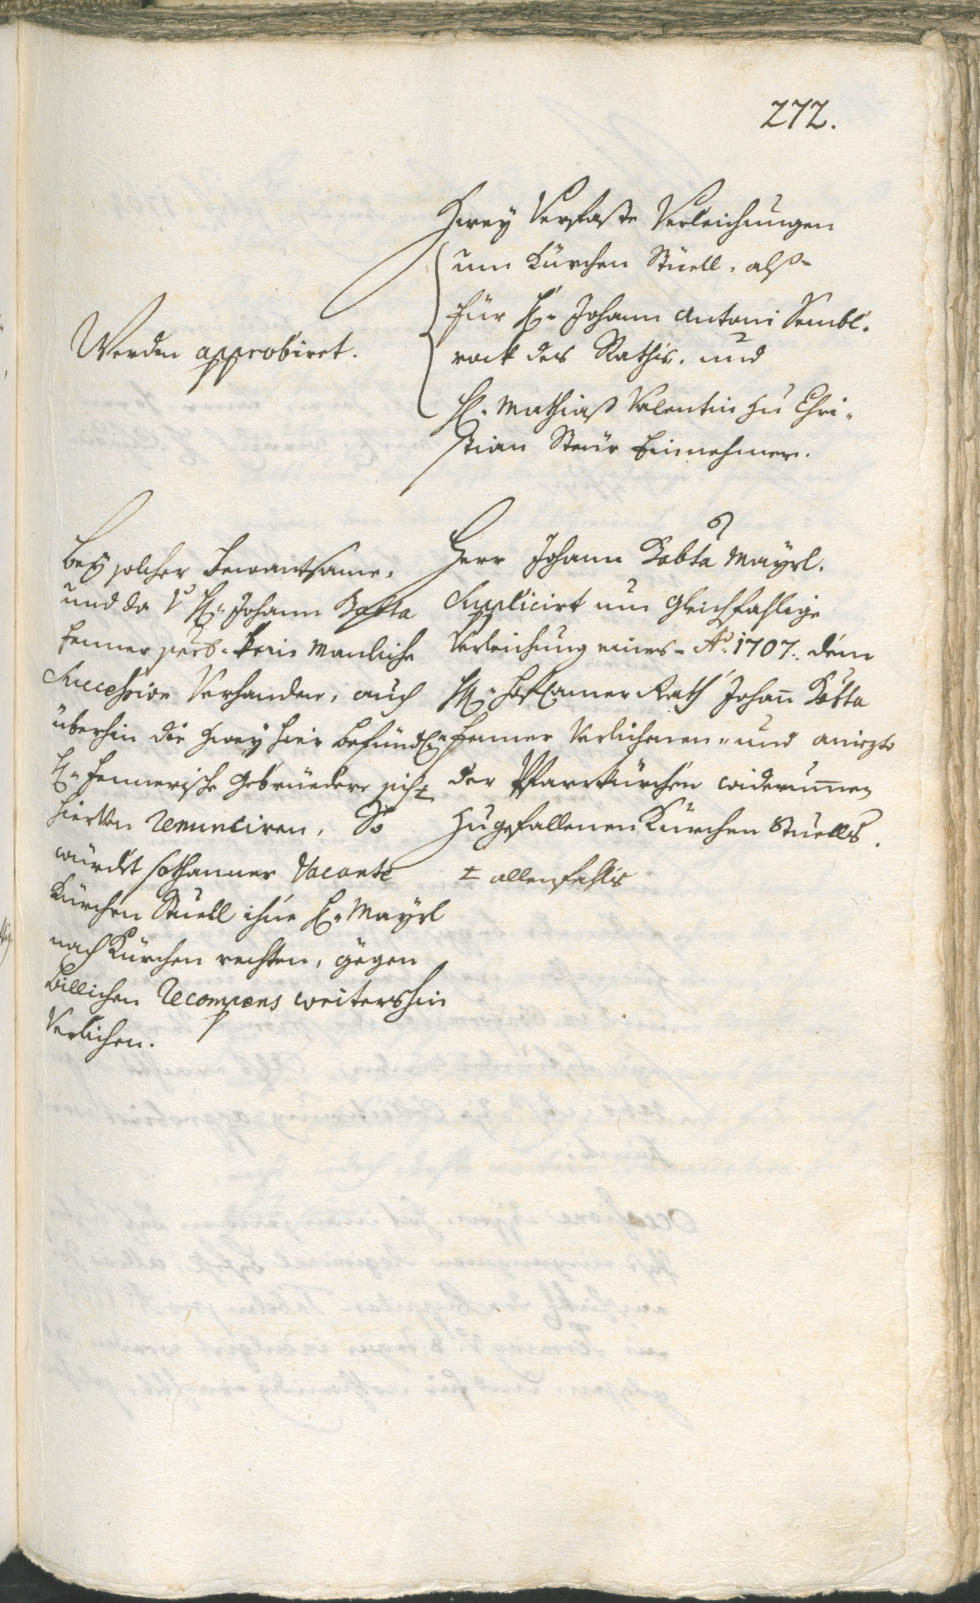 272.
Zwey Verfaste Verleichungen
um Kürchen Stuell. alß
für H: Johann Antoni Sembl.
rock des Raths. und
H: Mathiaß Valentin zu Chri-
stian Steur Einnehmer.
Werden approbiret.
Herr Johann Babta Mayrl.
Supplicirt um gleichfahlige
Verleichung eines Aº: 1707. dem
H: HofCamer Rath Johann Babta
Fenner Verlichenen- und aniezto
der Pfarrkürchen widerumen
zugefallenen Kürchen Stuells.
± allenfahls
Bey solcher Bewantsame,
und da H: Johann Babta
Fenner kein Manliche
Succession Verhanden, auch
überhin die zwey hier befündl:
H: Fennerische Gebrüedere sich ±
hierVon Renunciren, So
würdet sothanner Vacante
Kürchen Stuell ihme H: Mayrl
nach Kürchen rechten, gegen
billichen Recompens weitershin
Verlichen.